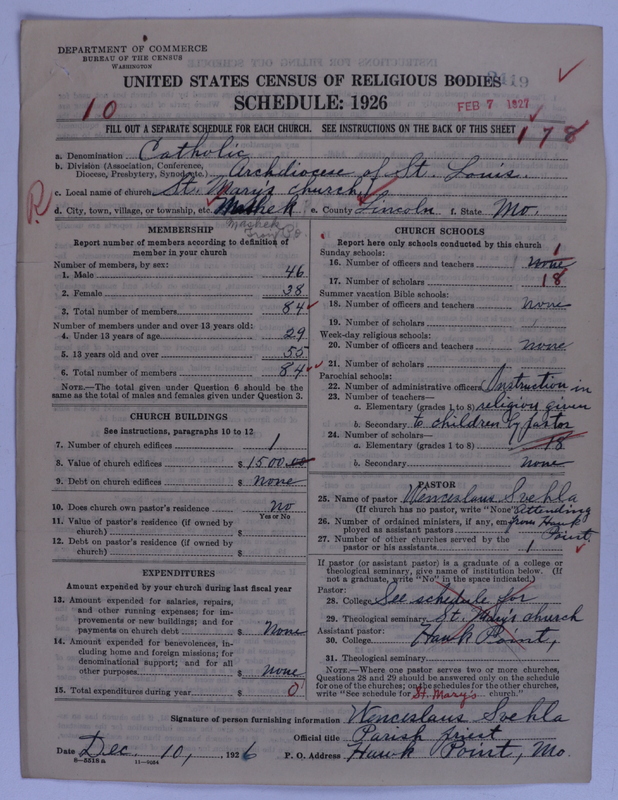 DEPARTMENT OF COMMERCE
BUREAU OF THE CENSUS
WASHINGTON
UNITED STATES CENSUS OF RELIGIOUS BODIES
SCHEDULE: 1926
10
FEB 7 1927
FILL OUT A SEPARATE SCHEDULE FOR EACH CHURCH. SEE INSTRUCTIONS ON THE BACK OF THIS SHEET
178
a. Denomination Catholic
b. Division (Association, Conference, Diocese, Presbytery, Synod, etc.) Archdiocese of St. Louis.
c. Local name of church St. Mary's church
R
d. City, town, village, or township, etc. Mashek e. County Lincoln f. State Mo.
Mashek
MEMBERSHIP
Report number of members according to definition of member in your church
Number of members, by sex:
1. Male 46
2. Female 38
3. Total number of members 84
Number of members under and over 13 years old:
4. Under 13 years of age 29
5. 13 years old and over 55
6. Total number of members 84
NOTE.—The total given under Question 6 should be the same as the total of males and females given under Question 3.
CHURCH BUILDINGS
See instructions, paragraphs 10 to 12
7. Number of church edifices 1
8. Value of church edifices $ 1500.00
9. Debt on church edifices $ None
10. Does church own pastor's residence? no
Yes or No
11. Value of pastor's residence (if owned by church) $
12. Debt on pastor's residence (if owned by church) $
EXPENDITURES
Amount expended by your church during last fiscal year
13. Amount expended for salaries, repairs, and other running expenses; for improvements or new buildings; and for payments on church debt $ None
14. Amount expended for benevolences, including home and foreign missions; for denominational support; and for all other purposes $ none
15. Total expenditures during year $ 0
CHURCH SCHOOLS
Report here only schools conducted by this church
Sunday schools:
16. Number of officers and teachers none 1
17. Number of scholars 18
Summer vacation Bible schools:
18. Number of officers and teachers none
19. Number of scholars
Week-day religious schools:
20. Number of officers and teachers none
21. Number of scholars
Parochial schools:
22. Number of administrative officers Instruction in
23. Number of teachers—
a. Elementary (grades 1 to 8) religion given
b. Secondary to children by pastor
24. Number of scholars—
a. Elementary (grades 1 to 8) 18
b. Secondary none
PASTOR
25. Name of pastor Wenceslaus Svehla
(If church has no pastor, write "None") attending
26. Number of ordained ministers, if any, employed as assistant pastors from Hawk
27. Number of other churches served by the pastor or his assistants 1 Point.
If pastor (or assistant pastor) is a graduate of a college or theological seminary, give name of institution below. (If not a graduate, write "No" in the space indicated.)
Pastor:
28. College See schedule for
29. Theological seminary St. Mary's church
Assistant pastor:
30. College Hawk Point,
31. Theological seminary
NOTE.—Where one pastor serves two or more churches, Questions 28 and 29 should be answered only on the schedule for one of the churches; on the schedules for the other churches, write "See schedule for St. Mary's church."
Signature of person furnishing information Wenceslaus Svehla
Official title Parish priest
Date Dec. 10, 1926 P. O. Address Hawk Point, Mo.
8—5518a 11—9054